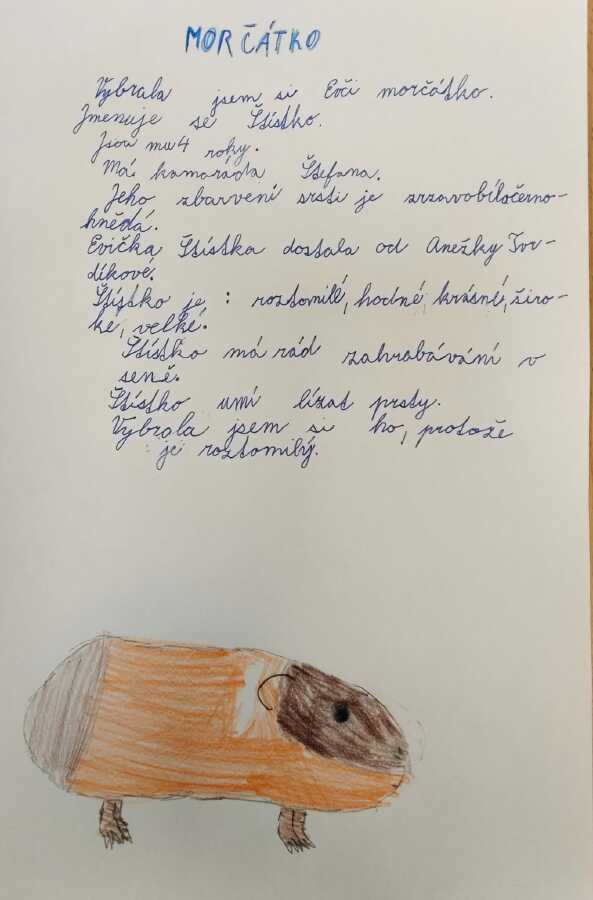 MORČÁTKO
Vybrala jsem si Evči morčátko.
Jmenuje se Štístko.
Jsou mu 4 roky.
Má kamaráda Štefana.
Jeho zbarvení srsti je zrzavobíločerno-
hnědá.
Evička Štístka dostala od Anežky Tvr-
díkové.
Štístko je : roztomilé, hodné, krásné, širo-
ké, velké.
Štístko má rád zahrabávání v
seně.
Štístko umí lízat prsty.
Vybrala jsem si ho, protože
je roztomilý.